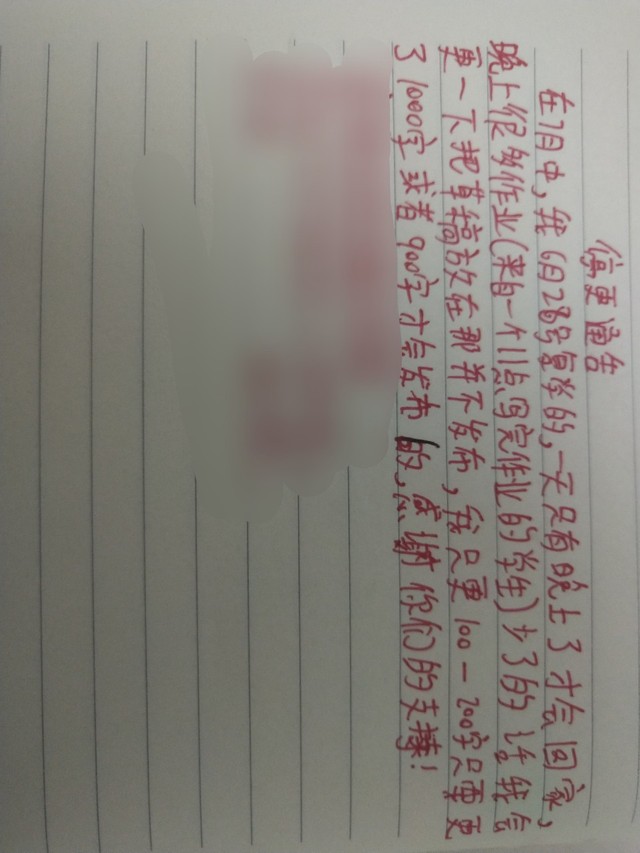 停更通告
在7日中，我6日28号复学的，一天只有晚上了才会回家，
晚上很多作业(来自一个11点写完作业的学生)少了的话我会
更一下把草稿放在那并不发布，我只更100-200字只要更
了1000字或者900字才会发布的，感谢你们的支持！